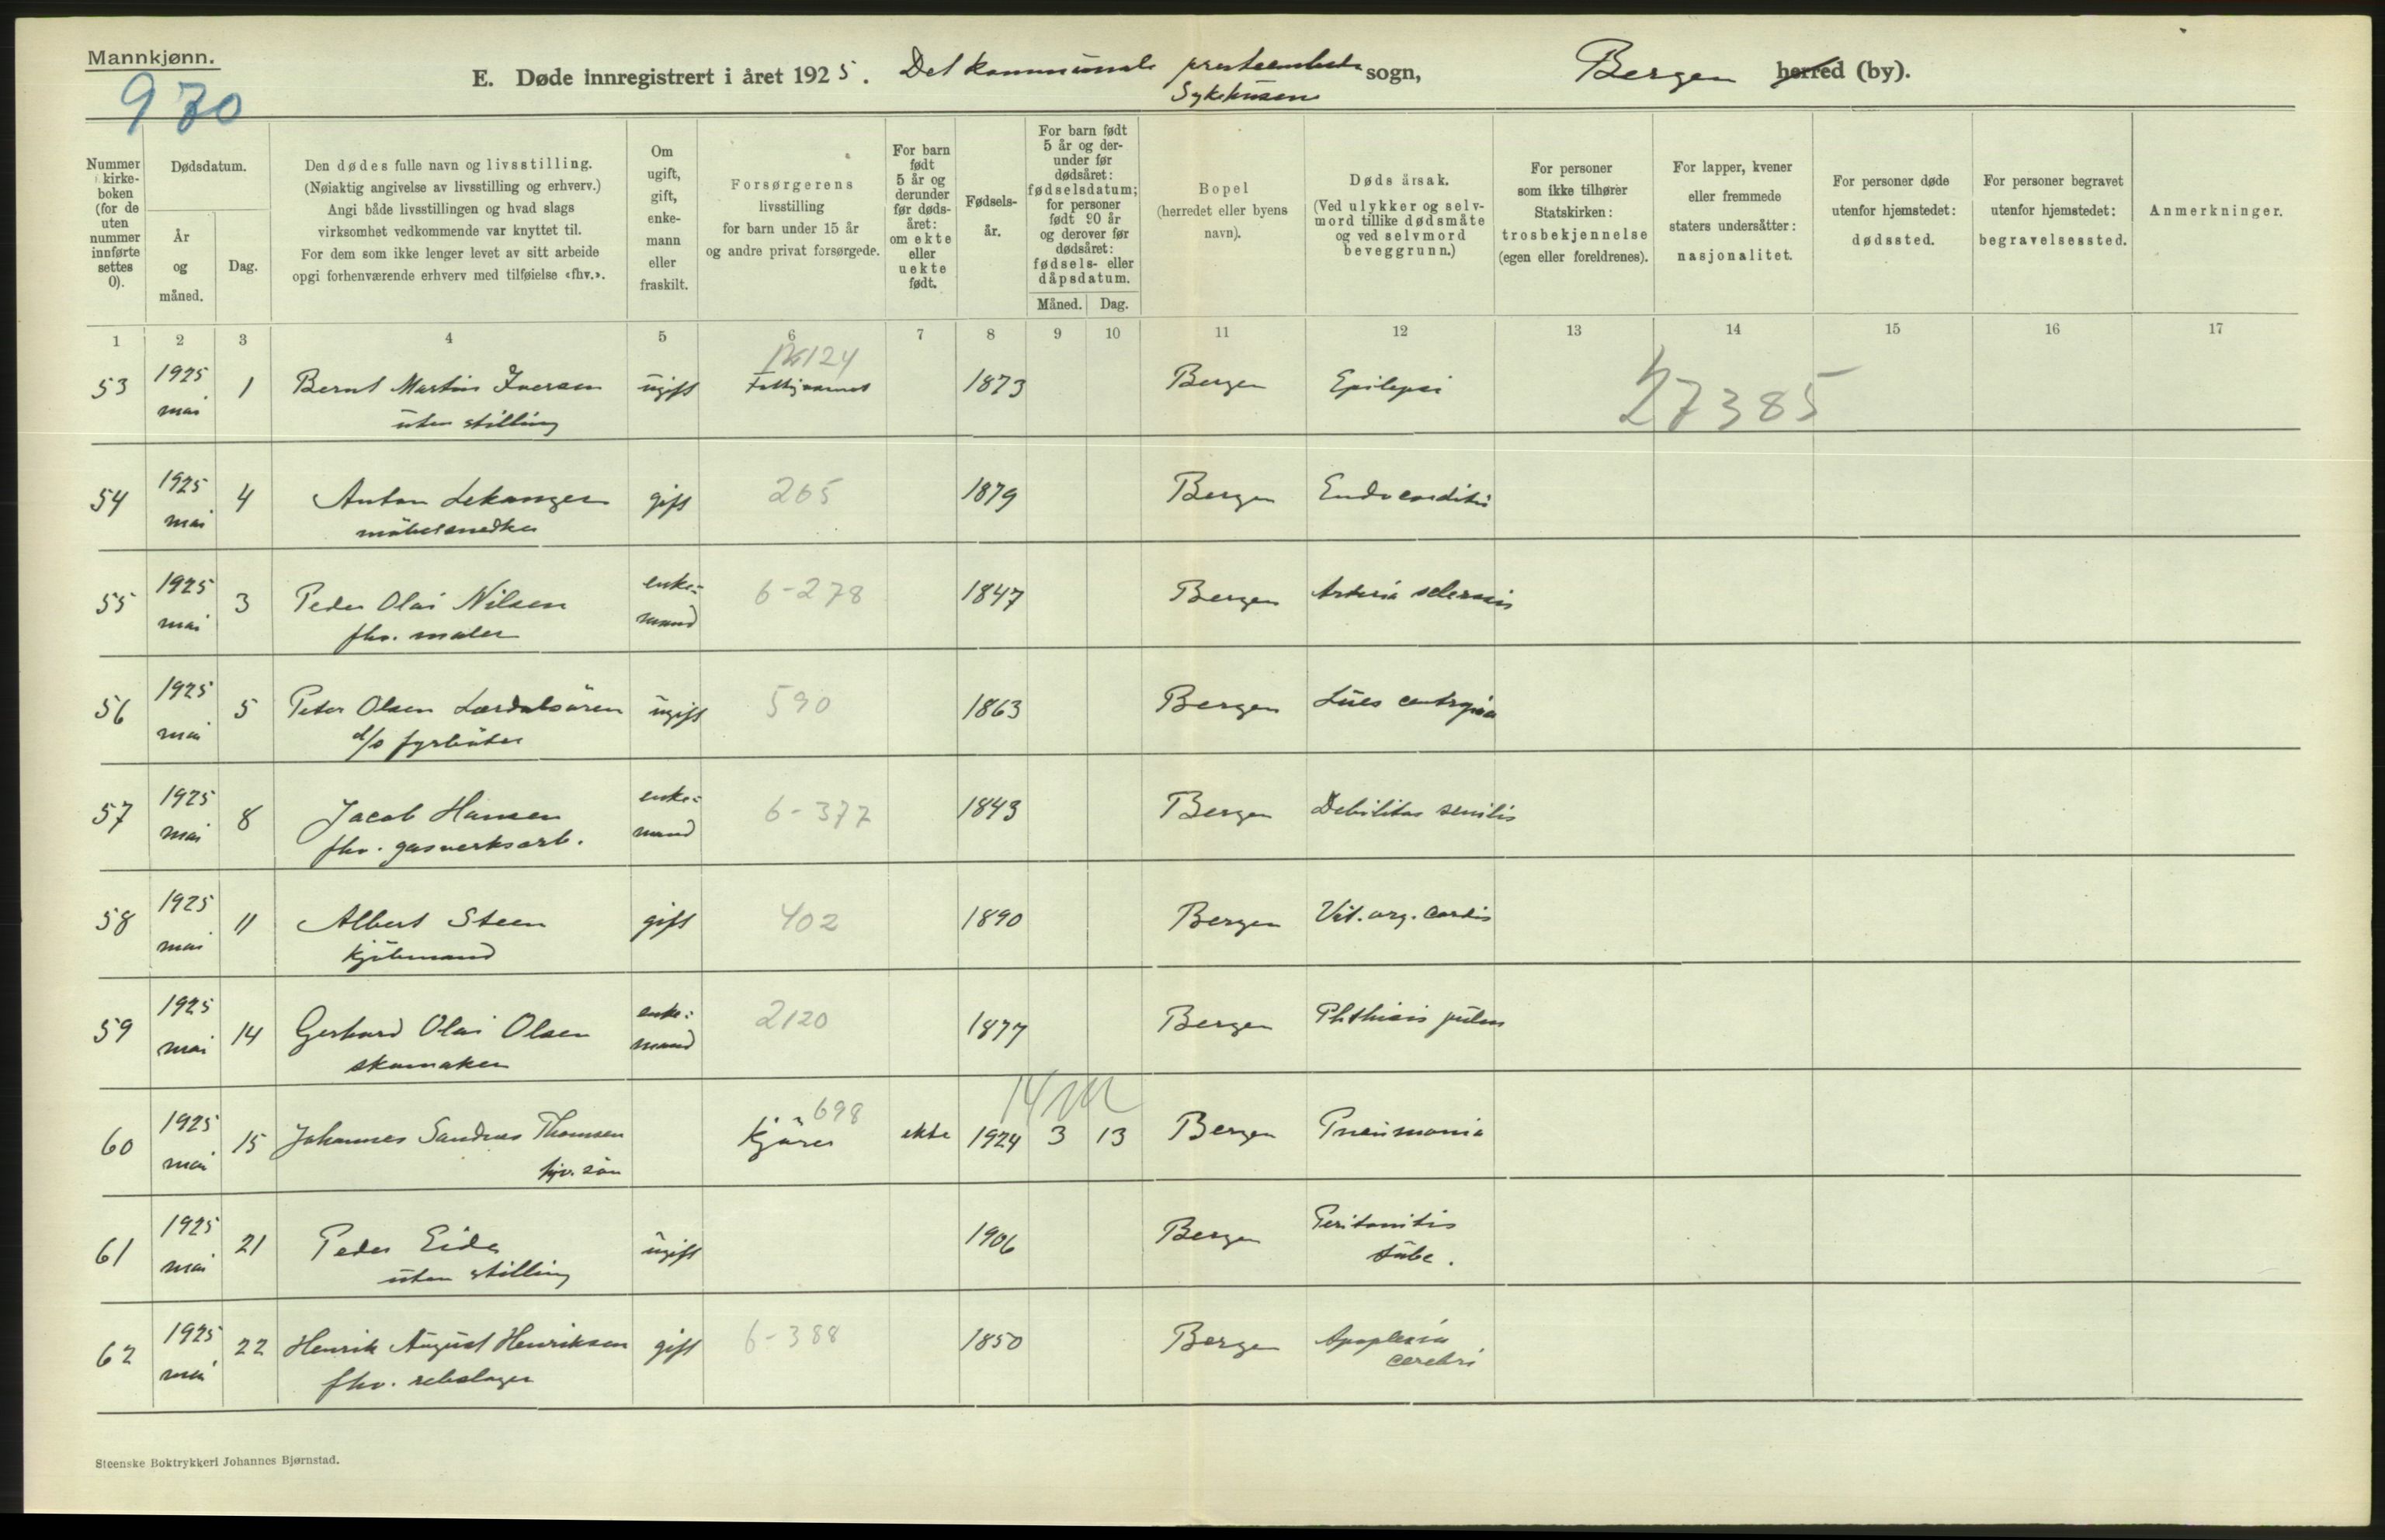 Mannkjønn.
970
E. Døde innregistrert i året 1925. Det kommunale presteembede sogn, Bergen herred (by).
Sykehusene
Nummer i kirke-boken (for de uten nummer innførte settes 0).
Dødsdatum.
År og måned.
Dag.
Den dødes fulle navn og livsstilling.
(Nøiaktig angivelse av livsstilling og erhverv.)
Angi både livsstillingen og hvad slags
virksomhet vedkommende var knyttet til.
For dem som ikke lenger levet av sitt arbeide
opgi forhenværende erhverv med tilføielse «fhv.».
Om ugift, gift, enke-mann eller fraskilt.
Forsørgerens
livsstilling
for barn under 15 år
og andre privat forsørgede.
For barn født 5 år og derunder før døds-året: om ekte eller uekte født.
Fødsels-år.
For barn født 5 år og der-under før dødsåret: fødselsdatum; for personer født 90 år og derover før dødsåret: fødsels- eller dåpsdatum.
Måned. Dag.
Bopel
(herredet eller byens
navn).
Dødsårsak.
(Ved ulykker og selv-
mord tillike dødsmåte
og ved selvmord
beveggrunn.)
For personer
som ikke tilhører
Statskirken:
trosbekjennelse
(egen eller foreldrenes).
For lapper, kvener
eller fremmede
staters undersåtter:
nasjonalitet.
For personer døde
utenfor hjemstedet:
dødssted.
For personer begravet
utenfor hjemstedet:
begravelsessted.
Anmerkninger.
1 2 3 4 5 6 7 8 9 10 11 12 13 14 15 16 17
53 1925 mai 1 Bernt Martin Iversen ugift 1873 Bergen Epilepsi 27385
uten stilling
54 1925 mai 4 Anton Lekanger gift 265 1879 Bergen Endocarditis
møbelsnedker
55 1925 mai 3 Peder Olai Nilsen enke-mand 6-278 1847 Bergen Arteria sclerosis
fhv. maler
56 1925 mai 5 Peter Olsen Lærdalsøren ugift 590 1863 Bergen Lues
d/s fyrbøter
57 1925 mai 8 Jacob Hansen enke-mand 6-377 1843 Bergen Debilitas senilis
fhv. gasverksarb.
58 1925 mai 11 Albert Steen gift 402 1890 Bergen Vit. org. cordis
Kjøbmand
59 1925 mai 14 Gerhard Olai Olsen enke-mand 2120 1877 Bergen Phthisis pulm
skomaker
14 M
60 1925 mai 15 Johannes Sandnes Thomsen 698 Kjører ekte 1924 3 13 Bergen Pneumonia
hjv. søn
61 1925 mai 21 Peder Eide ugift 1906 Bergen Peritonitis
uten stilling tube.
62 1925 mai 22 Henrik August Henriksen gift 6-388 1850 Bergen Apoplexia
fhv. rebslager cerebri
Steenske Boktrykkeri Johannes Bjørnstad.